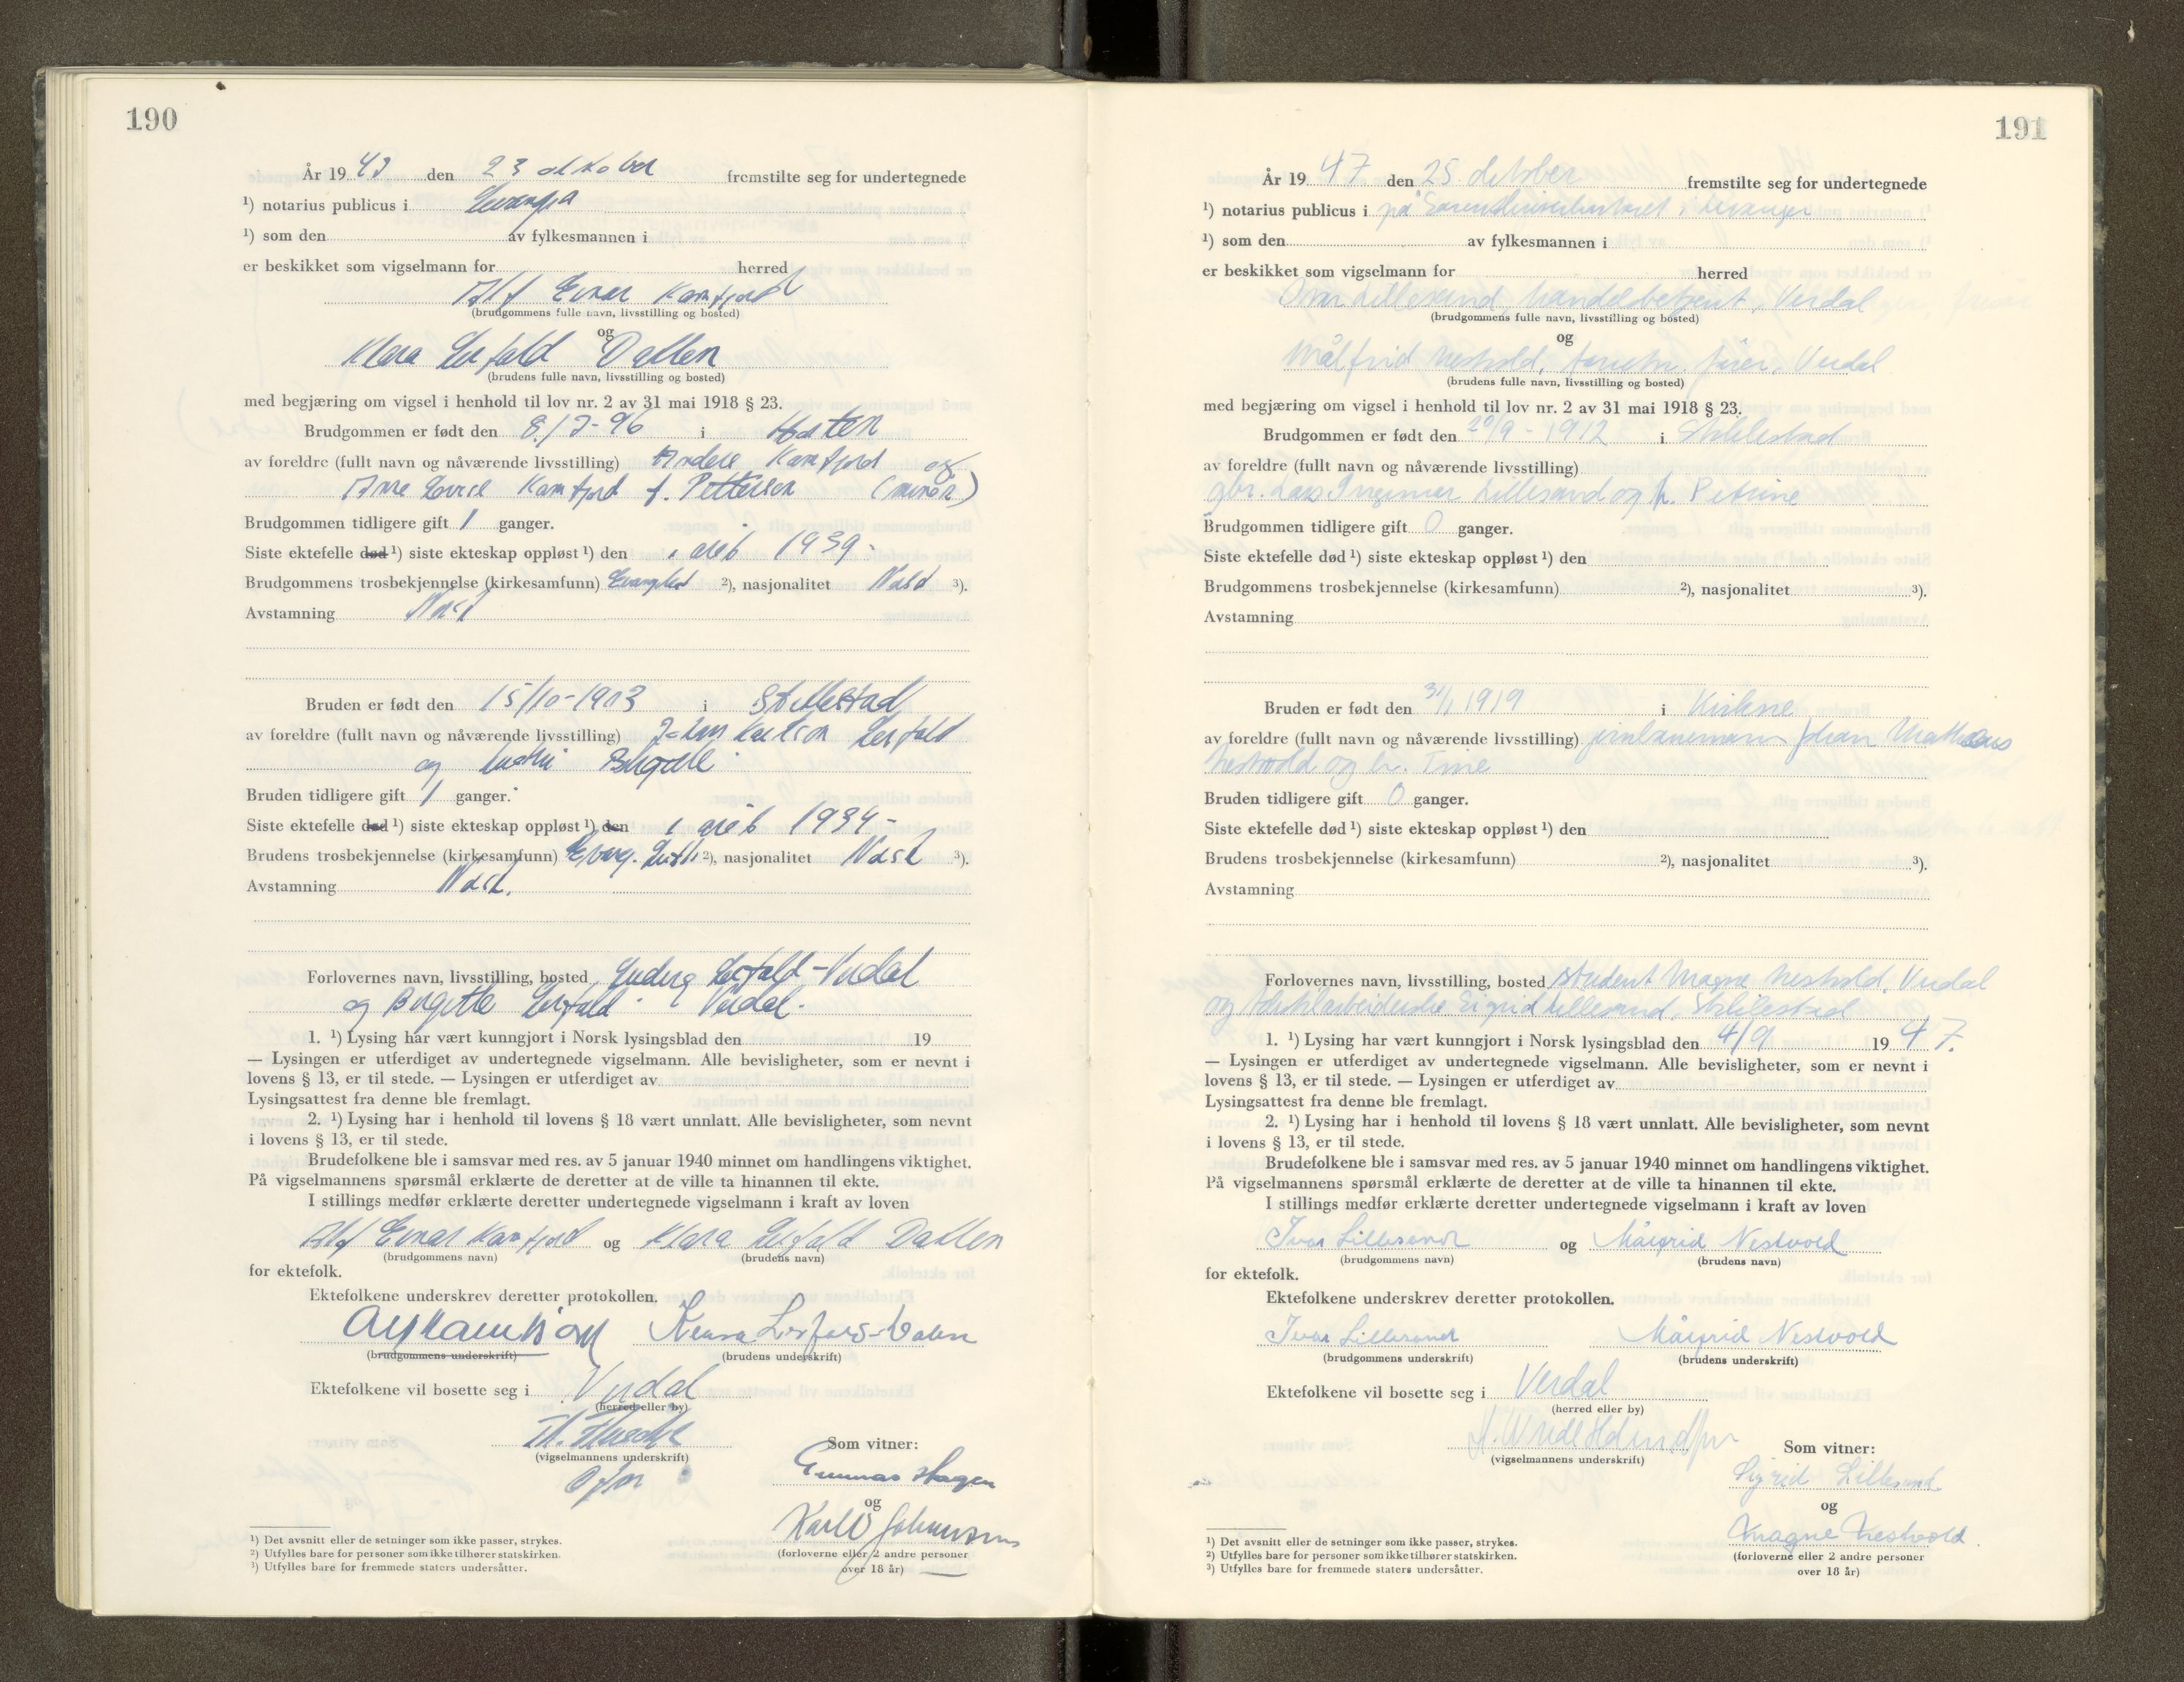 190
År 19 den 23 oktober fremstilte seg for undertegnede
¹) notarius publicus i
¹) som den av fylkesmannen i
er beskikket som vigselmann for herred
Alf Einar Kamfjord
(brudgommens fulle navn, livsstilling og bosted)
og
Klara Leirfald Dahlen
(brudens fulle navn, livsstilling og bosted)
med begjæring om vigsel i henhold til lov nr. 2 av 31 mai 1918 § 23.
Brudgommen er født den i
av foreldre (fullt navn og nåværende livsstilling) Kamfjord og
Kamfjord f. Pettersen
Brudgommen tidligere gift 1 ganger.
Siste ektefelle død ¹) siste ekteskap oppløst ¹) den i 1939
Brudgommens trosbekjennelse (kirkesamfunn) ²), nasjonalitet Norsk ³).
Avstamning Norsk
Bruden er født den 15/10-1903 i Stiklestad
av foreldre (fullt navn og nåværende livsstilling) Leirfald
og
Bruden tidligere gift 1 ganger.
Siste ektefelle død ¹) siste ekteskap oppløst ¹) den i 1934
Brudens trosbekjennelse (kirkesamfunn) Evang. Luth. ²), nasjonalitet Norsk ³).
Avstamning Norsk.
Forlovernes navn, livsstilling, bosted Leirfald - Verdal
og Leirfald Verdal.
1. ¹) Lysing har vært kunngjort i Norsk lysingsblad den 19
— Lysingen er utferdiget av undertegnede vigselmann. Alle bevisligheter, som er nevnt i
lovens § 13, er til stede. — Lysingen er utferdiget av
Lysingsattest fra denne ble fremlagt.
2. ¹) Lysing har i henhold til lovens § 18 vært unnlatt. Alle bevisligheter, som nevnt
i lovens § 13, er til stede.
Brudefolkene ble i samsvar med res. av 5 januar 1940 minnet om handlingens viktighet.
På vigselmannens spørsmål erklærte de deretter at de ville ta hinannen til ekte.
I stillings medfør erklærte deretter undertegnede vigselmann i kraft av loven
Alf Einar Kamfjord og Klara Leirfald Dahlen
(brudgommens navn) (brudens navn)
for ektefolk.
Ektefolkene underskrev deretter protokollen.
(brudgommens underskrift) (brudens underskrift)
Ektefolkene vil bosette seg i Verdal
(herred eller by)
(vigselmannens underskrift)
Som vitner:
Gunnar Hagen
og
Karl Johansen
(forloverne eller 2 andre personer
over 18 år)
¹) Det avsnitt eller de setninger som ikke passer, strykes.
²) Utfylles bare for personer som ikke tilhører statskirken.
³) Utfylles bare for fremmede staters undersåtter.
191
År 19 47 den 25 oktober fremstilte seg for undertegnede
¹) notarius publicus i på Sorenskriverkontoret i Levanger
¹) som den av fylkesmannen i
er beskikket som vigselmann for herred
Ivar Lillesand, handelsbetjent, Verdal
(brudgommens fulle navn, livsstilling og bosted)
og
Målfrid Nestvold, Verdal
(brudens fulle navn, livsstilling og bosted)
med begjæring om vigsel i henhold til lov nr. 2 av 31 mai 1918 § 23.
Brudgommen er født den 20/9 - 1912 i Stiklestad
av foreldre (fullt navn og nåværende livsstilling)
gbr. Lars Ingemar Lillesand og h. Petrine
Brudgommen tidligere gift 0 ganger.
Siste ektefelle død ¹) siste ekteskap oppløst ¹) den
Brudgommens trosbekjennelse (kirkesamfunn) ²), nasjonalitet ³).
Avstamning
Bruden er født den 31/1 1919 i Kirkene
av foreldre (fullt navn og nåværende livsstilling) Johan
Nestvold og h. Tine
Bruden tidligere gift 0 ganger.
Siste ektefelle død ¹) siste ekteskap oppløst ¹) den
Brudens trosbekjennelse (kirkesamfunn) ²), nasjonalitet ³).
Avstamning
Forlovernes navn, livsstilling, bosted student Magne Nestvold, Verdal
og Sigrid Lillesand, Stiklestad
1. ¹) Lysing har vært kunngjort i Norsk lysingsblad den 4/9 19 47.
— Lysingen er utferdiget av undertegnede vigselmann. Alle bevisligheter, som er nevnt i
lovens § 13, er til stede. — Lysingen er utferdiget av
Lysingsattest fra denne ble fremlagt.
2. ¹) Lysing har i henhold til lovens § 18 vært unnlatt. Alle bevisligheter, som nevnt
i lovens § 13, er til stede.
Brudefolkene ble i samsvar med res. av 5 januar 1940 minnet om handlingens viktighet.
På vigselmannens spørsmål erklærte de deretter at de ville ta hinannen til ekte.
I stillings medfør erklærte deretter undertegnede vigselmann i kraft av loven
Ivar Lillesand og Målfrid Nestvold
(brudgommens navn) (brudens navn)
for ektefolk.
Ektefolkene underskrev deretter protokollen.
Ivar Lillesand Målfrid Nestvold
(brudgommens underskrift) (brudens underskrift)
Ektefolkene vil bosette seg i Verdal
(herred eller by)
(vigselmannens underskrift)
Som vitner:
Sigrid Lillesand.
og
Magne Nestvold.
(forloverne eller 2 andre personer
over 18 år)
¹) Det avsnitt eller de setninger som ikke passer, strykes.
²) Utfylles bare for personer som ikke tilhører statskirken.
³) Utfylles bare for fremmede staters undersåtter.